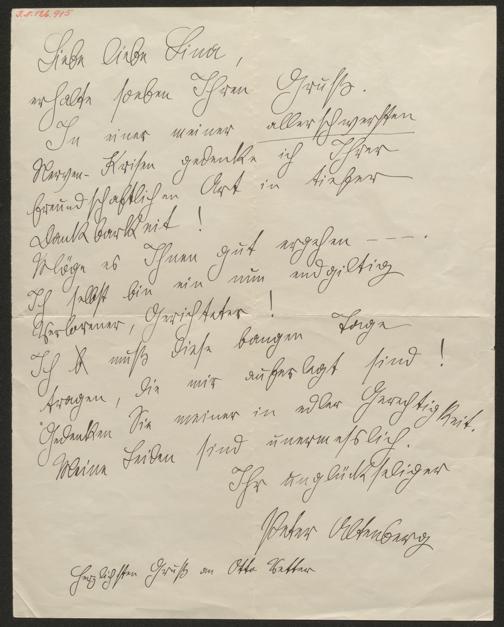 J.N. 126.915
Liebe liebe Lina,
erhalte soeben Ihren Gruß.
In einer meiner allerschwersten
Nerven-Krisen gedenke ich Ihrer
freundschaftlichen Art in tiefer
Dankbarkeit!
Möge es Ihnen gut ergehen — — — .
Ich selbst bin ein nun endgiltig
Verlorener, Gerichteter!
Ich muß diese bangen Tage
tragen, die mir auferlegt sind!
Gedenken Sie meiner in edler Gerechtigkeit.
Meine Leiden sind unermesslich.
Ihr unglückseliger
Peter Altenberg
Herzlichsten Gruß an Otto